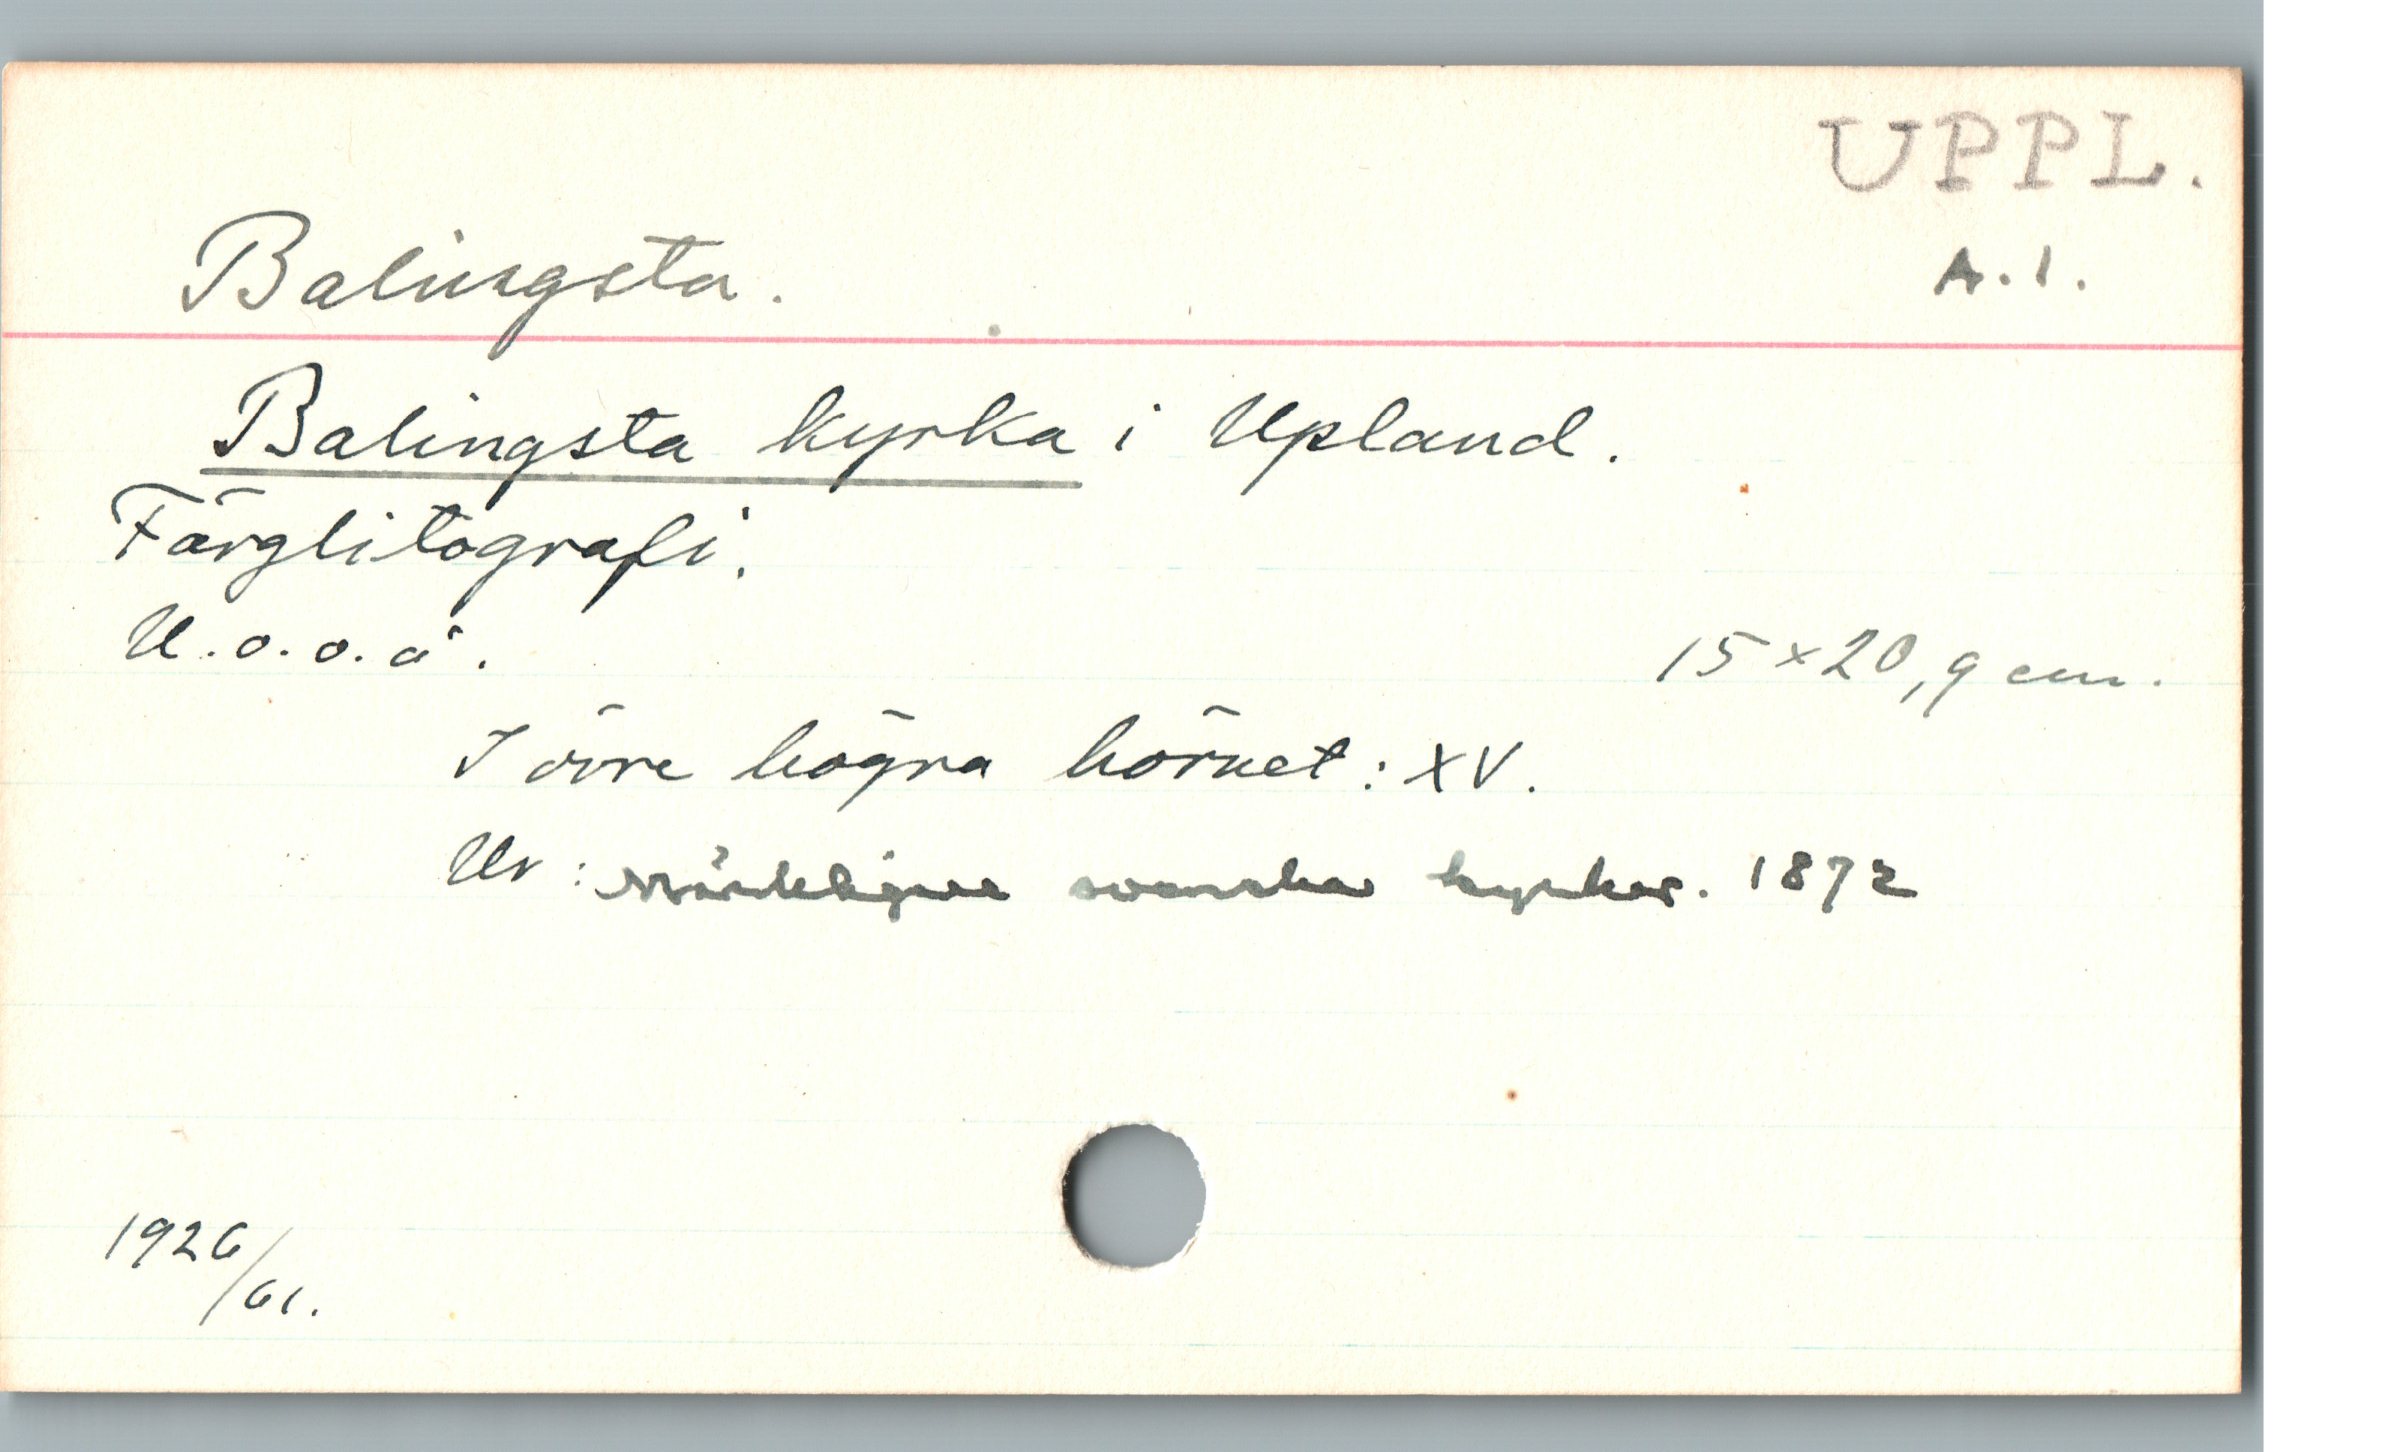 UPPL.
Balingsta.
A.1.
Balingsta kyrka i Upland.
Färglitografi.
U.o.o.å.
15 × 20,9 cm.
I övre högra hörnet: XV.
Ur: Märkligare svenska kyrkor. 1872
1926/61.